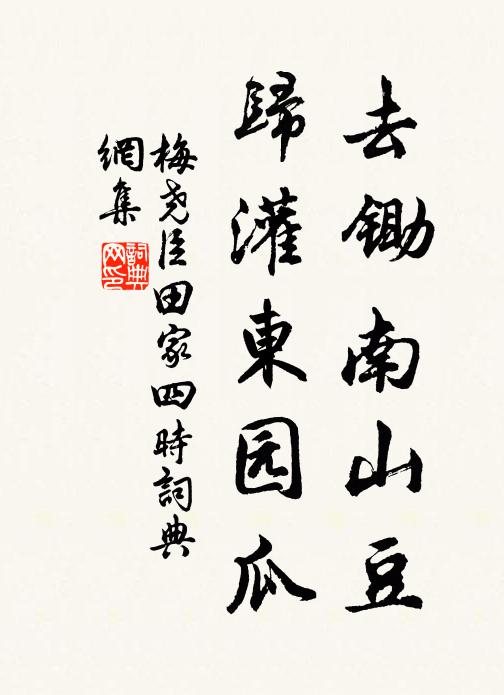 去鋤南山豆
歸灌東园瓜
梅尧臣田家四時詞典
網集
詞典网印